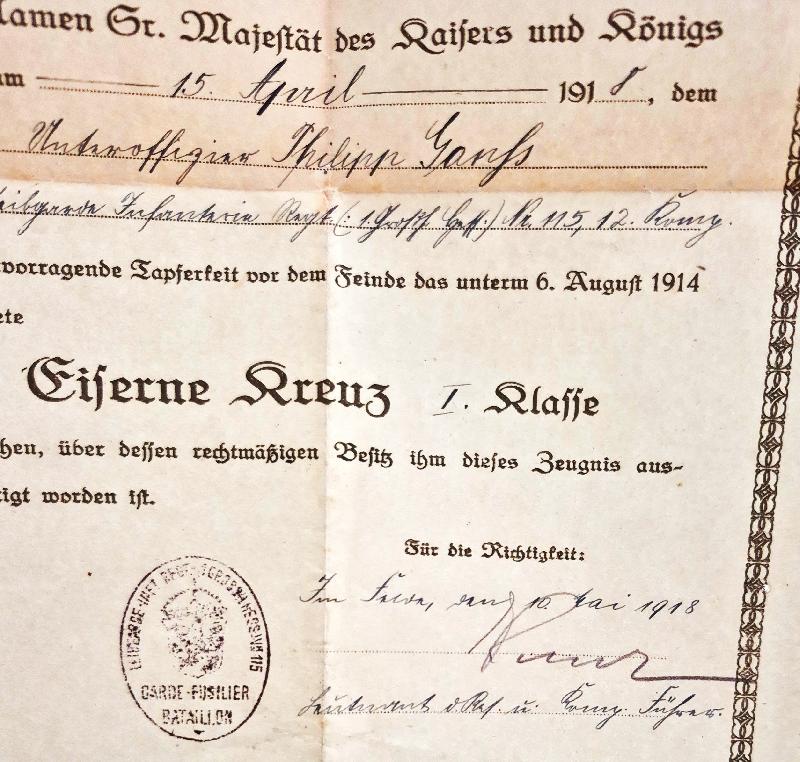 Namen Sr. Majestät des Kaisers und Königs
am 15. April 1918, dem
Unteroffizier Philipp
Leibgarde Infanterie Regt. (: 1. Großh. Hess.) Nr. 115, 12. Komp.
vorragende Tapferkeit vor dem Feinde das unterm 6. August 1914
ete
Eiserne Kreuz I. Klasse
hen, über dessen rechtmäßigen Besitz ihm dieses Zeugnis aus-
tigt worden ist.
Für die Richtigkeit:
Im Felde, den 10. Mai 1918
Leutnant d. Res. u. Komp. Führer.
LEIBGARDE-INFT. REGT. 1. GROSSH. HESS. NR. 115
GARDE-FÜSILIER
BATAILLON